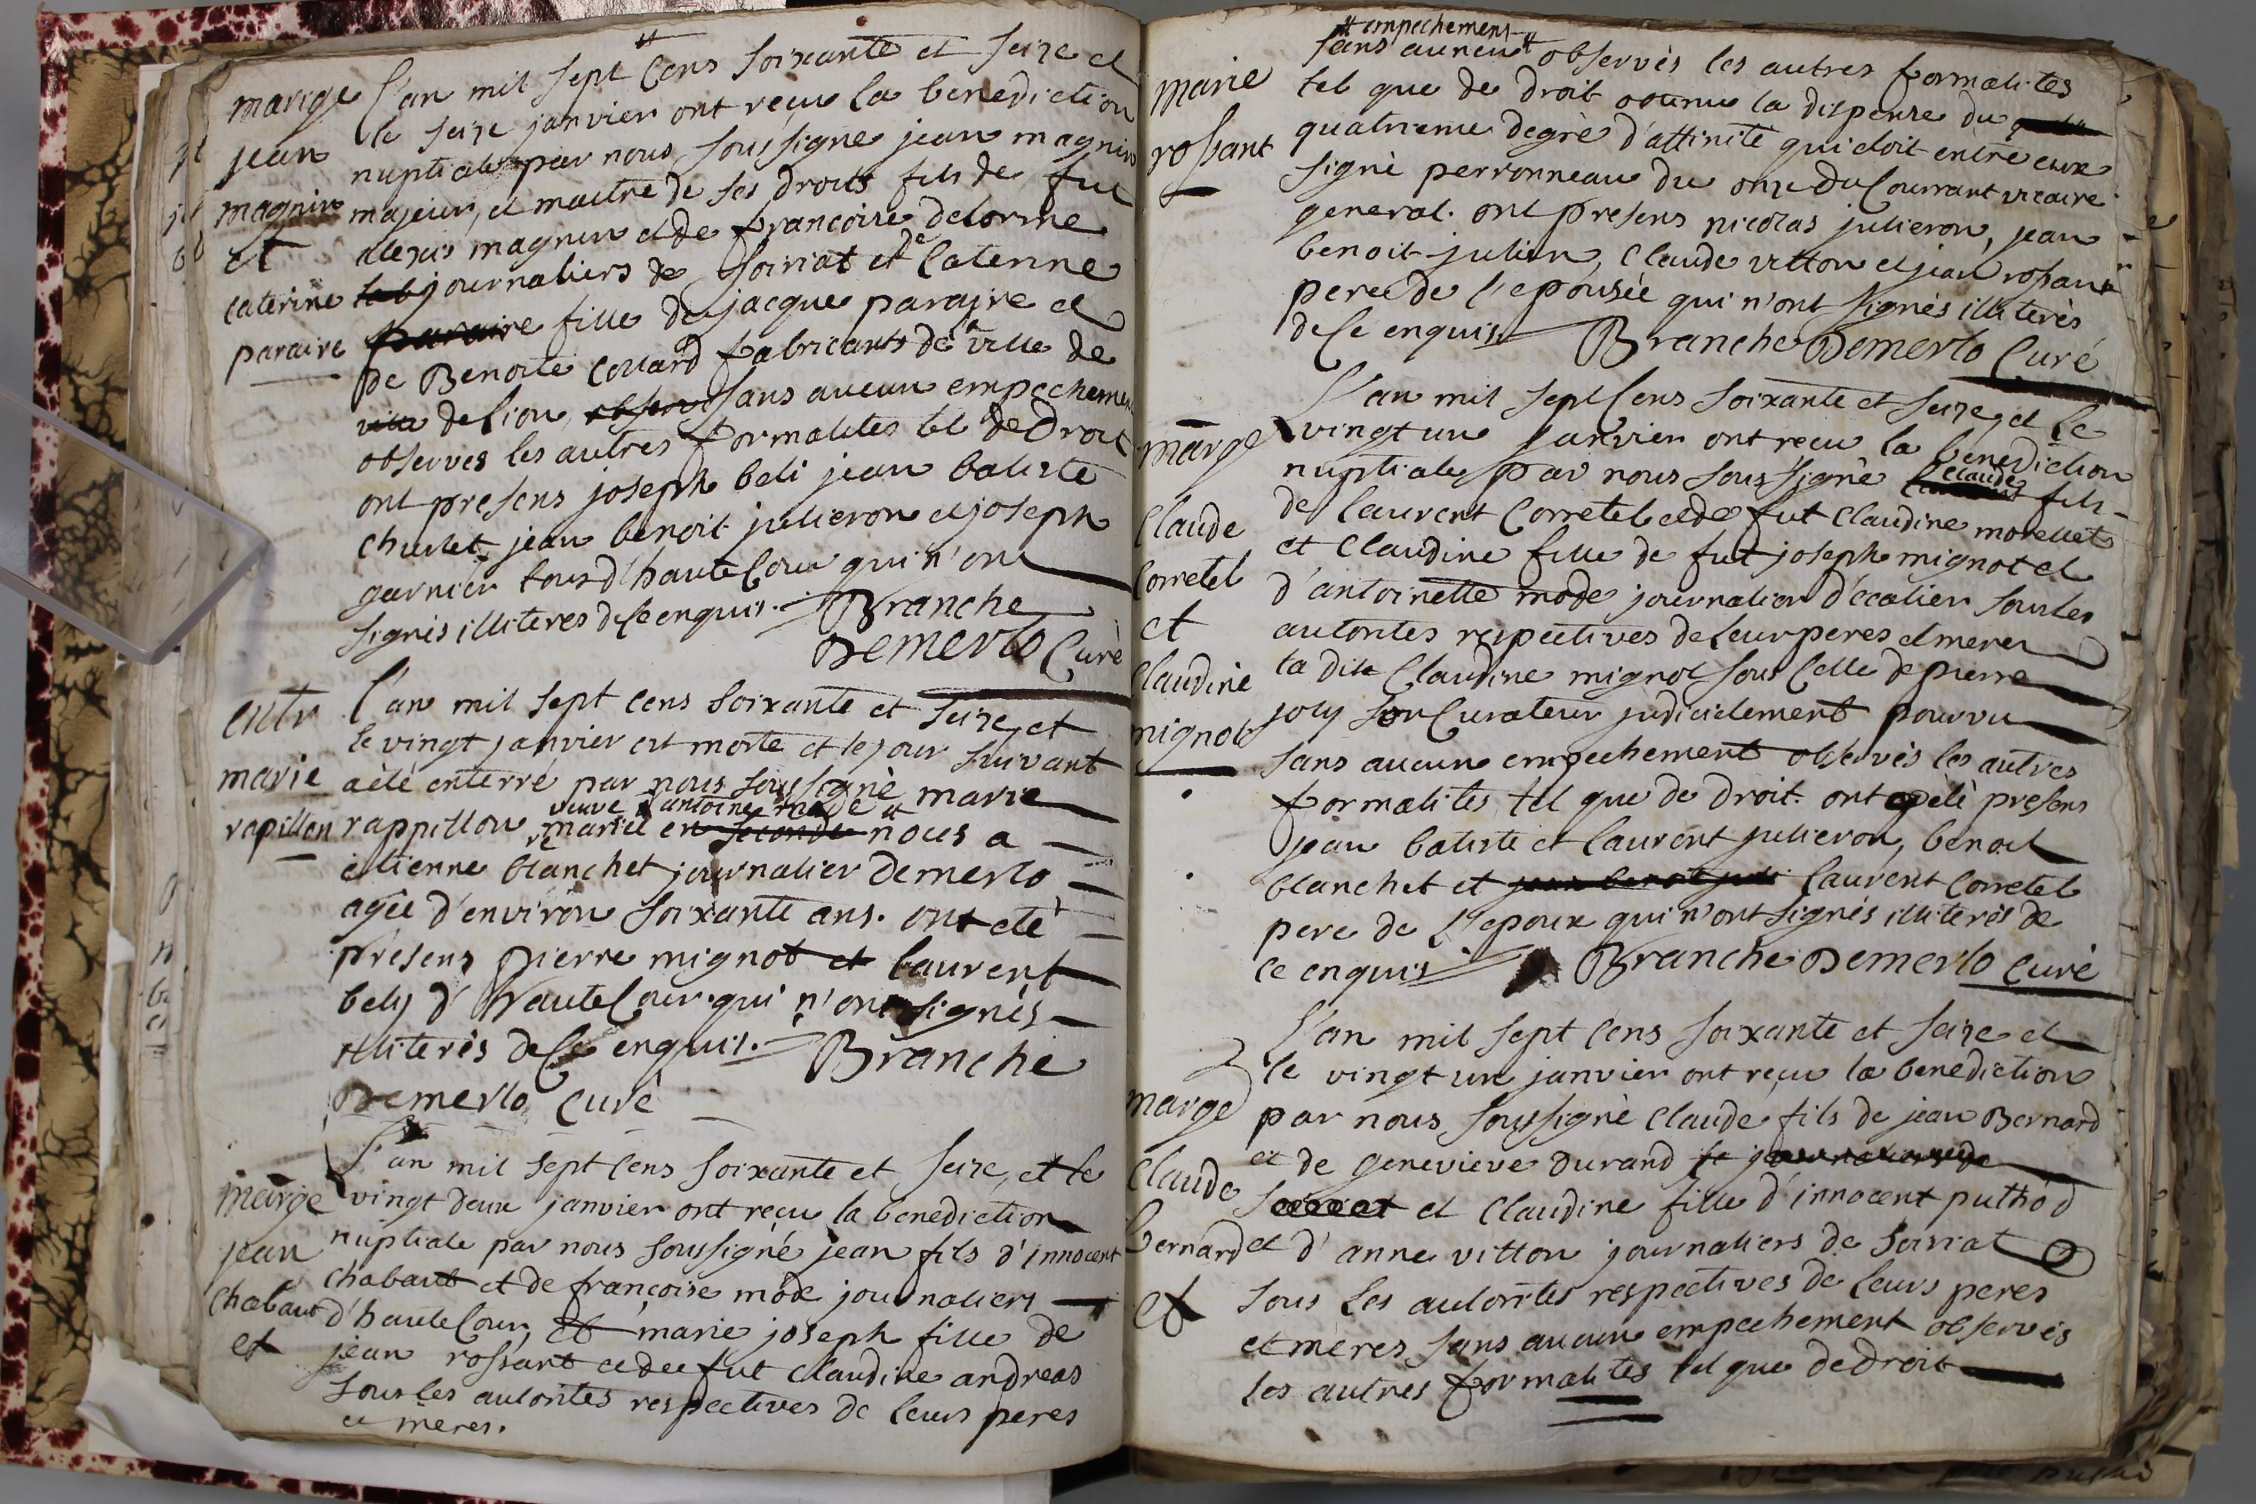 marige
jean
magnin
et
caterine
paraire
L'an mil sept Cens soixante et seize et
le seize janvier ont reçu la benediction
nuptiale par nous soussigné jean magnin
majeur, et maitre de ses droits fils de fut
alexis magnin et de francoise delorme
journaliers de soiriat et de Caterine
paraire fille de jacque paraire et
de Benoite Collard fabricants de la ville de
ville de lion, observé sans aucun empechement
observes les autres formalites tel de Droit
ont presens joseph beli jean batiste
charlet jean benoit julieron et joseph
garnier tous d'hauteCour qui n'ont
signés illiteres de Ce enquis. Branche
Demerlo Curé
entr
marie
rapillon
L'an mil sept cens soixante et seize et
le vingt janvier est morte et le jour suivant
a été enterré par nous soussigné marie
veuve d'antoine mode
rappillon mariée en seconde nous a
etienne blanchet journalier Demerlo
agée d'environ soixante ans. ont eté
présens pierre mignot et laurent
bely d'hauteCour qui n'ont signés
illiterés de Ce enquis. Branche
Demerlo Curé
marge
jean
Chabaut
et
L'an mil sept Cens soixante et seize, et le
vingt deux janvier ont reçu la benediction
nuptiale par nous soussigné jean fils d'innocent
chabaut et de françoise mode journaliers
d'hauteCour, et marie joseph fille de
jean rossant et de fut Claudine andreas
sous les autorités respectives de leurs peres
et meres.
marie
rossant
empechement
sans aucun observés les autres formalites
tel que de droit obtenu la dispense du
quatrieme degré d'affinité qui doit entre eux
signé perronneau du onze du Courrant vicaire
general. ont presens nicolas julieron, jean
benoit julien, Claude vitton et jean rossant
pere de l'epousée qui n'ont signés illiterés
de Ce enquis Branche Demerlo Curé
marge
Claude
Corretel
et
Claudine
mignot
L'an mil sept Cens soixante et seize, et le
vingt un janvier ont recu la benediction
nuptiale par nous soussigné Claude fils
de laurent Corretel et de fut Claudine morellet
et Claudine fille de fut joseph mignot et
d'antoinette mode journalier d'ecalier sous les
autorites respectives de leur peres et meres
la dite Claudine mignot sous Celle de pierre
joly son Curateur judicielement pourvu
sans aucun empechement observés les autres
formalités tel que de droit. ont apelé presens
jean batiste et laurent julieron, benoit
blanchet et laurent Corretel
pere de l'epoux qui n'ont signés illiterés de
ce enquis Branche Demerlo Curé
marge
Claude
Bernard
et
L'an mil sept Cens soixante et seize et
le vingt un janvier ont reçu la benediction
par nous soussigné Claude fils de jean Bernard
et de genevieve durand journaliers de
soiriat et Claudine fille d'innocent puthod
et d'anne vitton journaliers de soiriat
sous les autorités respectives de leurs peres
et meres sans aucun empechement observés
les autres formalités tel que de droit